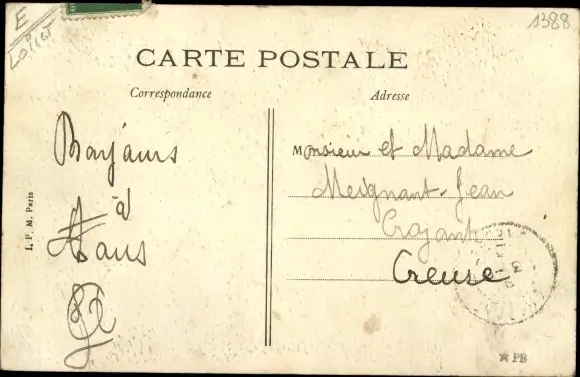 E
LOIRET
1388
CARTE POSTALE
Correspondance
Adresse
Bonjours
à
Tous
Monsieur et Madame
Meignant-Jean
Crozant
Creuse
I. P. M. Paris
PB